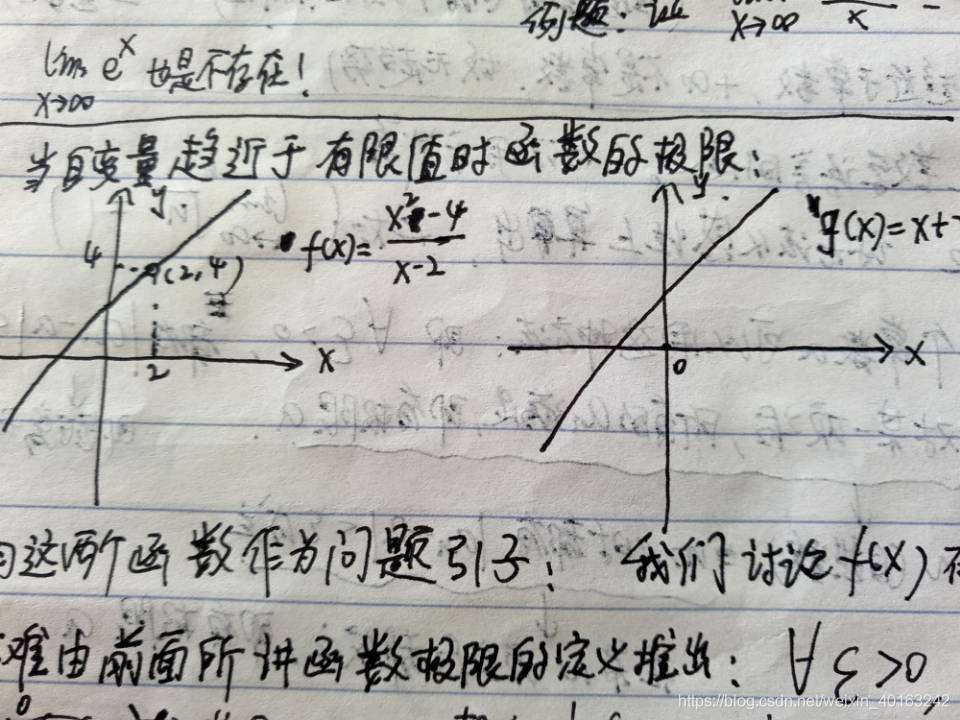 例题: 证 lim x→∞ x -
lim x→∞ e^x 也是不存在!
当自变量趋近于有限值时函数的极限:
y
4
(2,4)
2
x
f(x)= x²-4 / x-2
y
0
x
g(x)=x+
这两个函数作为问题引子: 我们讨论f(x)在
难由前面所讲函数极限的定义推出: ∀ε>0,
https://blog.csdn.net/weixin_40163242